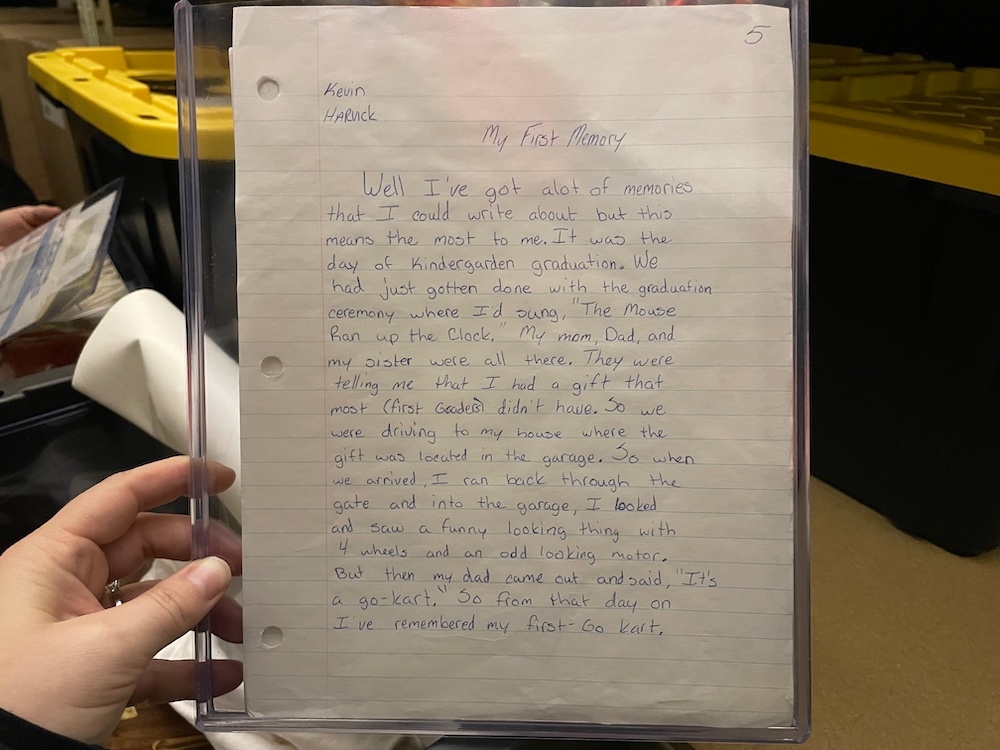 5
Kevin
HARVICK
My First Memory
Well I've got alot of memories
that I could write about but this
means the most to me. It was the
day of Kindergarden graduation. We
had just gotten done with the graduation
ceremony where I'd sung, "The Mouse
Ran up the Clock." My mom, Dad, and
my sister were all there. They were
telling me that I had a gift that
most (first Graders) didn't have. So we
were driving to my house where the
gift was located in the garage. So when
we arrived, I ran back through the
gate and into the garage, I looked
and saw a funny looking thing with
4 wheels and an odd looking motor.
But then my dad came out and said, "It's
a go-kart." So from that day on
I've remembered my first- Go kart.